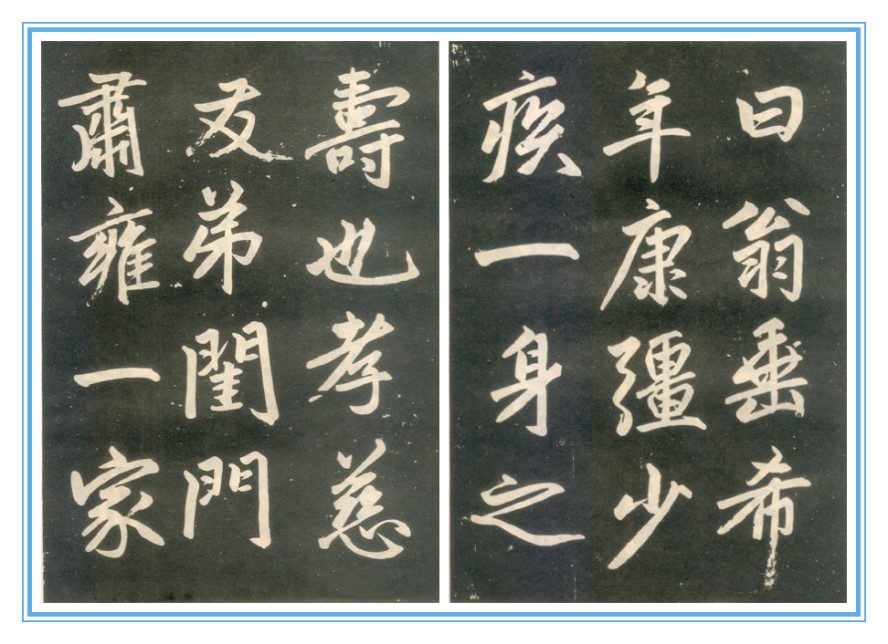 曰翁垂希
年康彊少
疾一身之
壽也孝慈
友弟閨門
肅雍一家